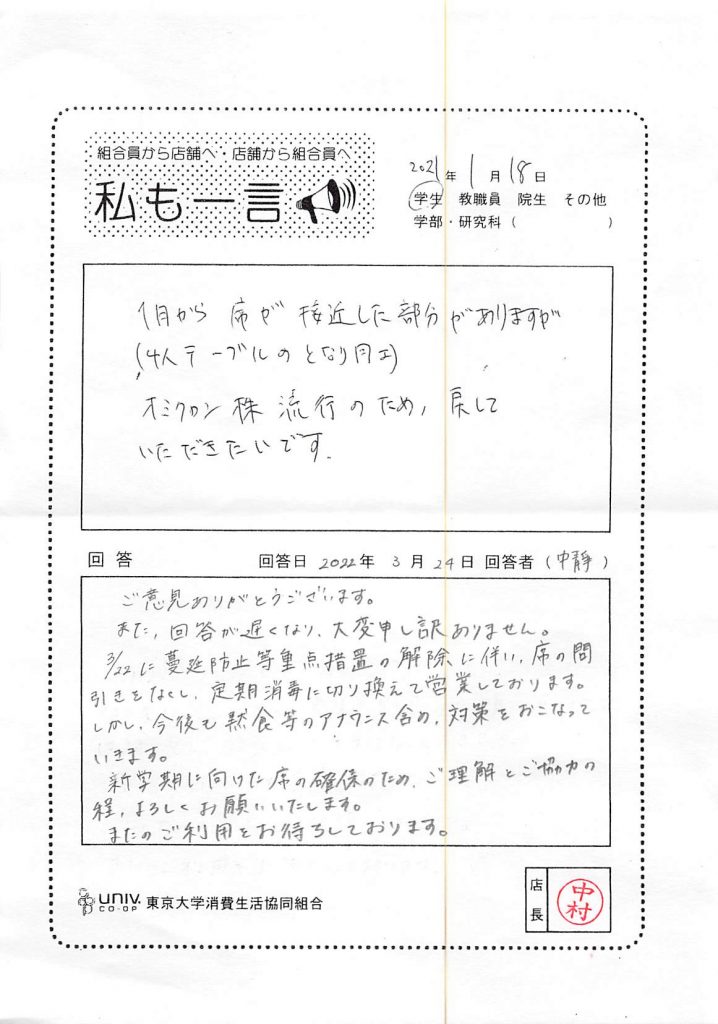 組合員から店舗へ・店舗から組合員へ
私も一言
2021年 1月 18日
学生 教職員 院生 その他
学部・研究科( )
1月から 席が 接近した部分がありますが
(4人テーブルのとなり同士)
オミクロン株 流行のため, 戻して
いただきたいです.
回答 回答日 2022年 3月 24日 回答者(中静)
ご意見ありがとうございます。
また, 回答が遅くなり, 大変申し訳ありません。
3/22に蔓延防止等重点措置の解除に伴い, 席の間
引きをなくし, 定期消毒に切り換えて営業しております。
しかし, 今後も黙食等のアナウンス含め, 対策をおこなって
いきます。
新学期に向けた席の確保のため, ご理解とご協力の
程, よろしくお願いいたします。
またのご利用をお待ちしております。
UNIV. CO-OP 東京大学消費生活協同組合
店長 中村